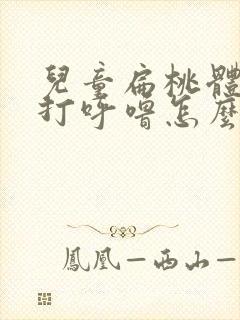 兒童扁桃體
打呼嚕怎麼
鳳凰—西山—